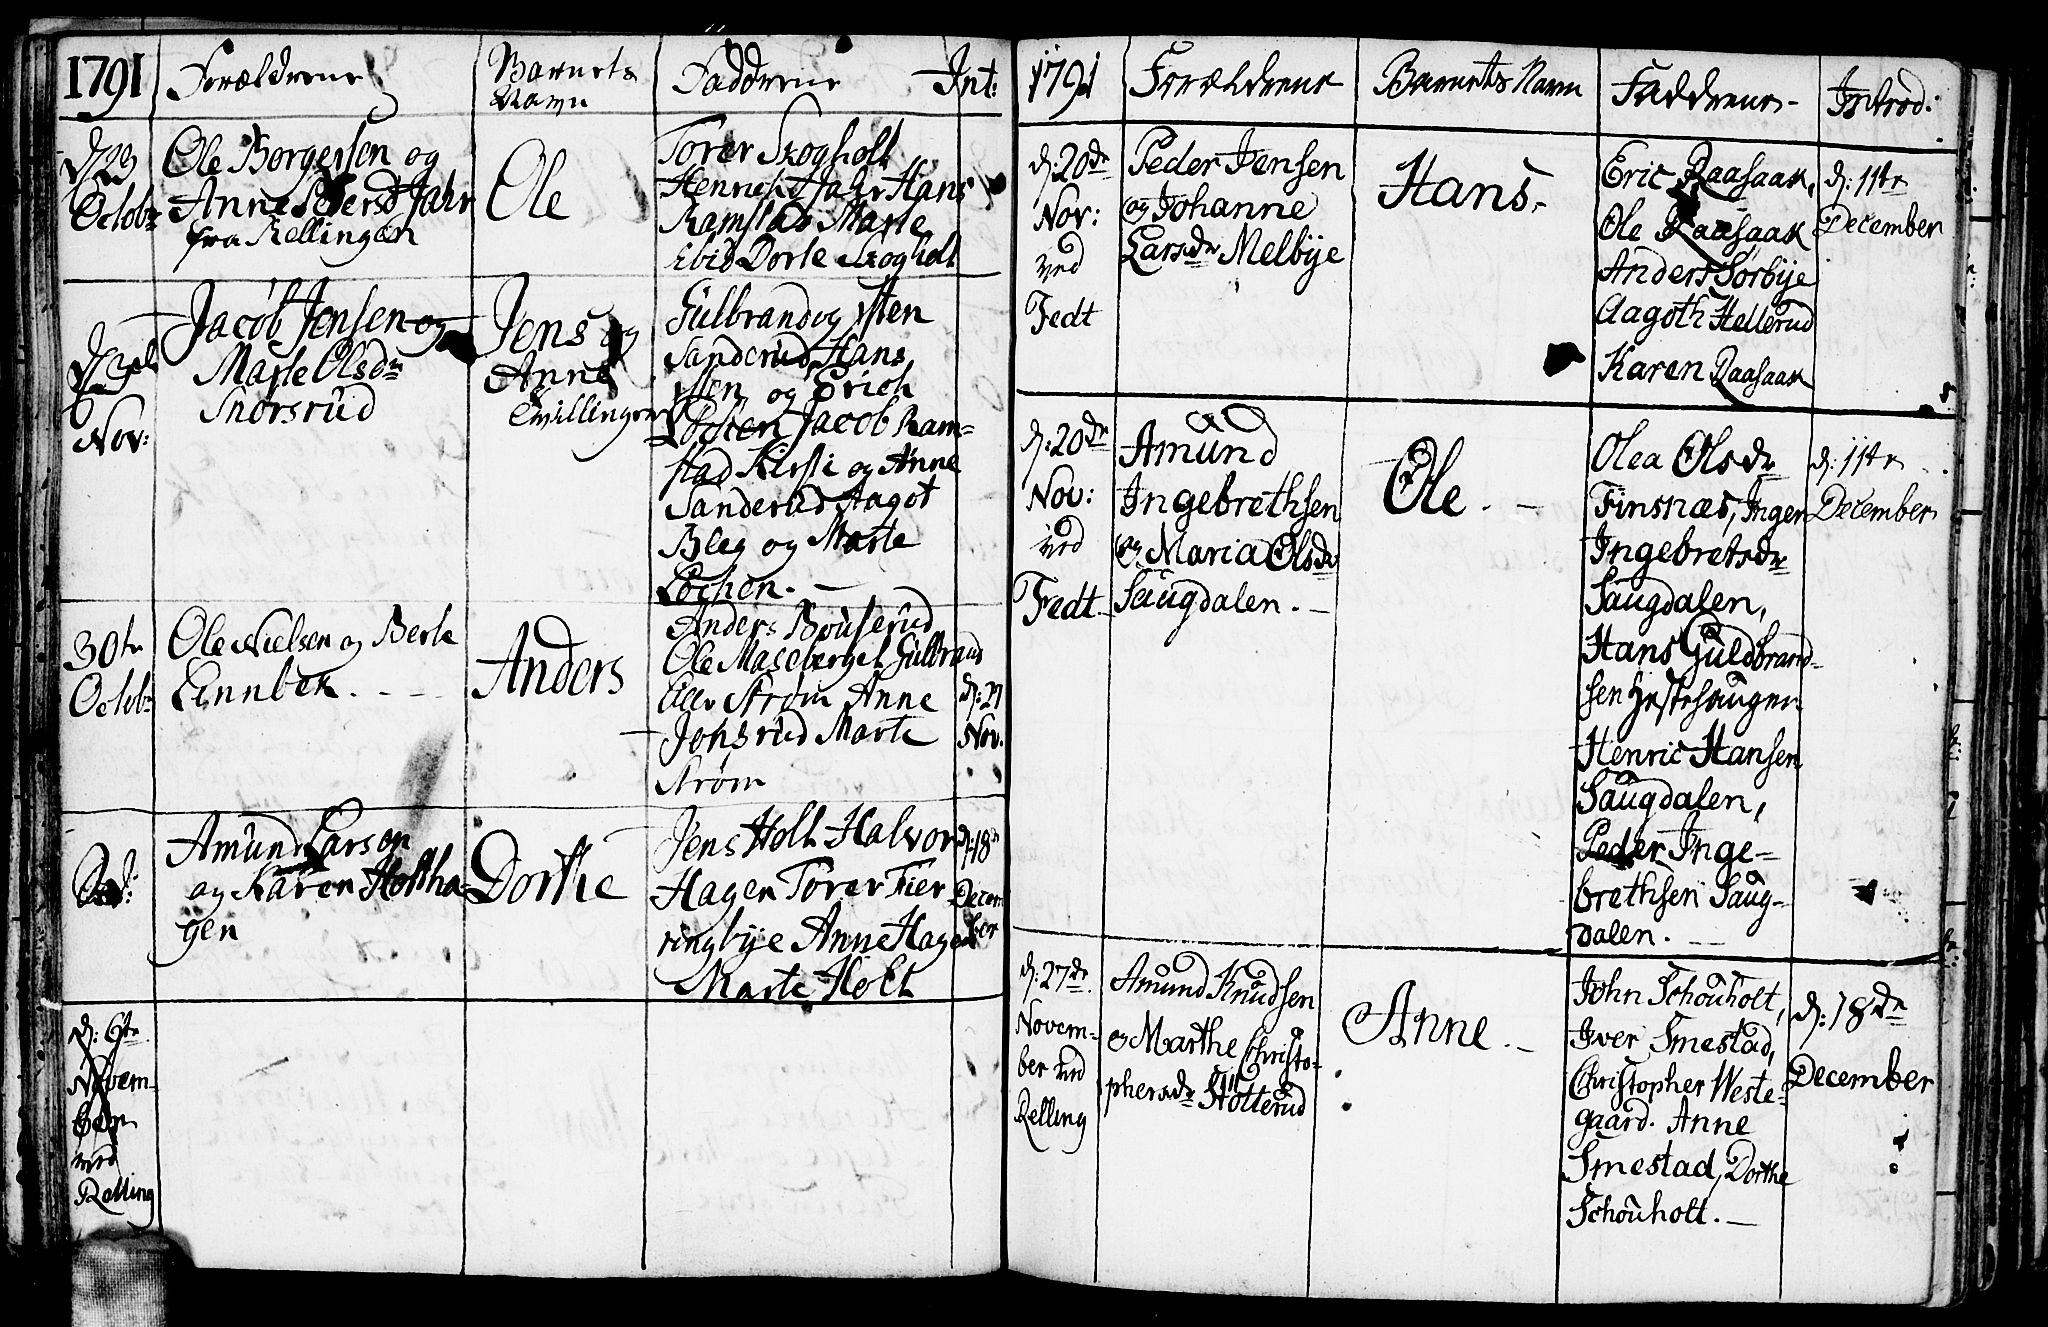 1791
Forældrene
Barnets
Navn
Fadderne
Int:
d 23
Octobr
Ole Borgersen og
Anne Jahr
fra Rellingen
Ole
Torer Skogholt
Henrich Jahr Hans
Ramstad Marte
ibid Dorte Skogholt
Nov:
Jacob Jensen og
Marte Olsdr
Snorsrud
Jens og
Anne
Tvillinger
Gulbrand og Iten
Sanderud Hans
Iten og Erich
Løchen Jacob Ram-
stad Kirsti og Anne
Sanderud Aagot
Bleg og Marte
Løchen. -
30te
Octobr
Ole Nielsen og Berte
Linnbek. - -
Anders
-
Anders Bouserud
Ole Maseberget Gulbrand
Strøm Anne
Johsrud Marte
Strøm
d: 27
Nov.
Amund Larsen
og Karen Holtha-
gen
Dorthe
Jens Holt Halvor
Hagen Torer Fier
ringbye Anne Hagen
Marte Holt
d: 18de
Decem
ber
d: 6te
Novem-
ber
ved
Relling
1791
Forældrene
Barnets Navn
Faddrene -
Introd:
d: 20de
Nov:
ved
Fedt
Peder Jensen
og Johanne
Larsdr Melbye
Hans -
Eric Raasaak,
Ole Raasaak
Anders Sørbye
Aagoth Hellerud
Karen Raasaak
d: 11te
December
d: 20de
Nov:
ved
Fedt
Amund
Ingebrethsen
og Maria Olsdr
Saugdalen. -
Ole. -
Olea Olsdr
Finsnæs, Inger
Ingebretsdr
Saugdalen,
Hans Guldbrand-
sen Hestehaugen
Henric Hansen
Saugdalen,
Peder Inge-
brethsen Saug-
dalen. -
d: 11te
December
d: 27de
Novem-
ber ved
Relling
Amund Knudsen
og Marthe Christo-
phersdr Stötterud
Anne. -
John Schouholt,
Iver Smestad,
Christopher Weste-
gaard. Anne
Smestad, Dorthe
Schouholt. -
d: 18de
December